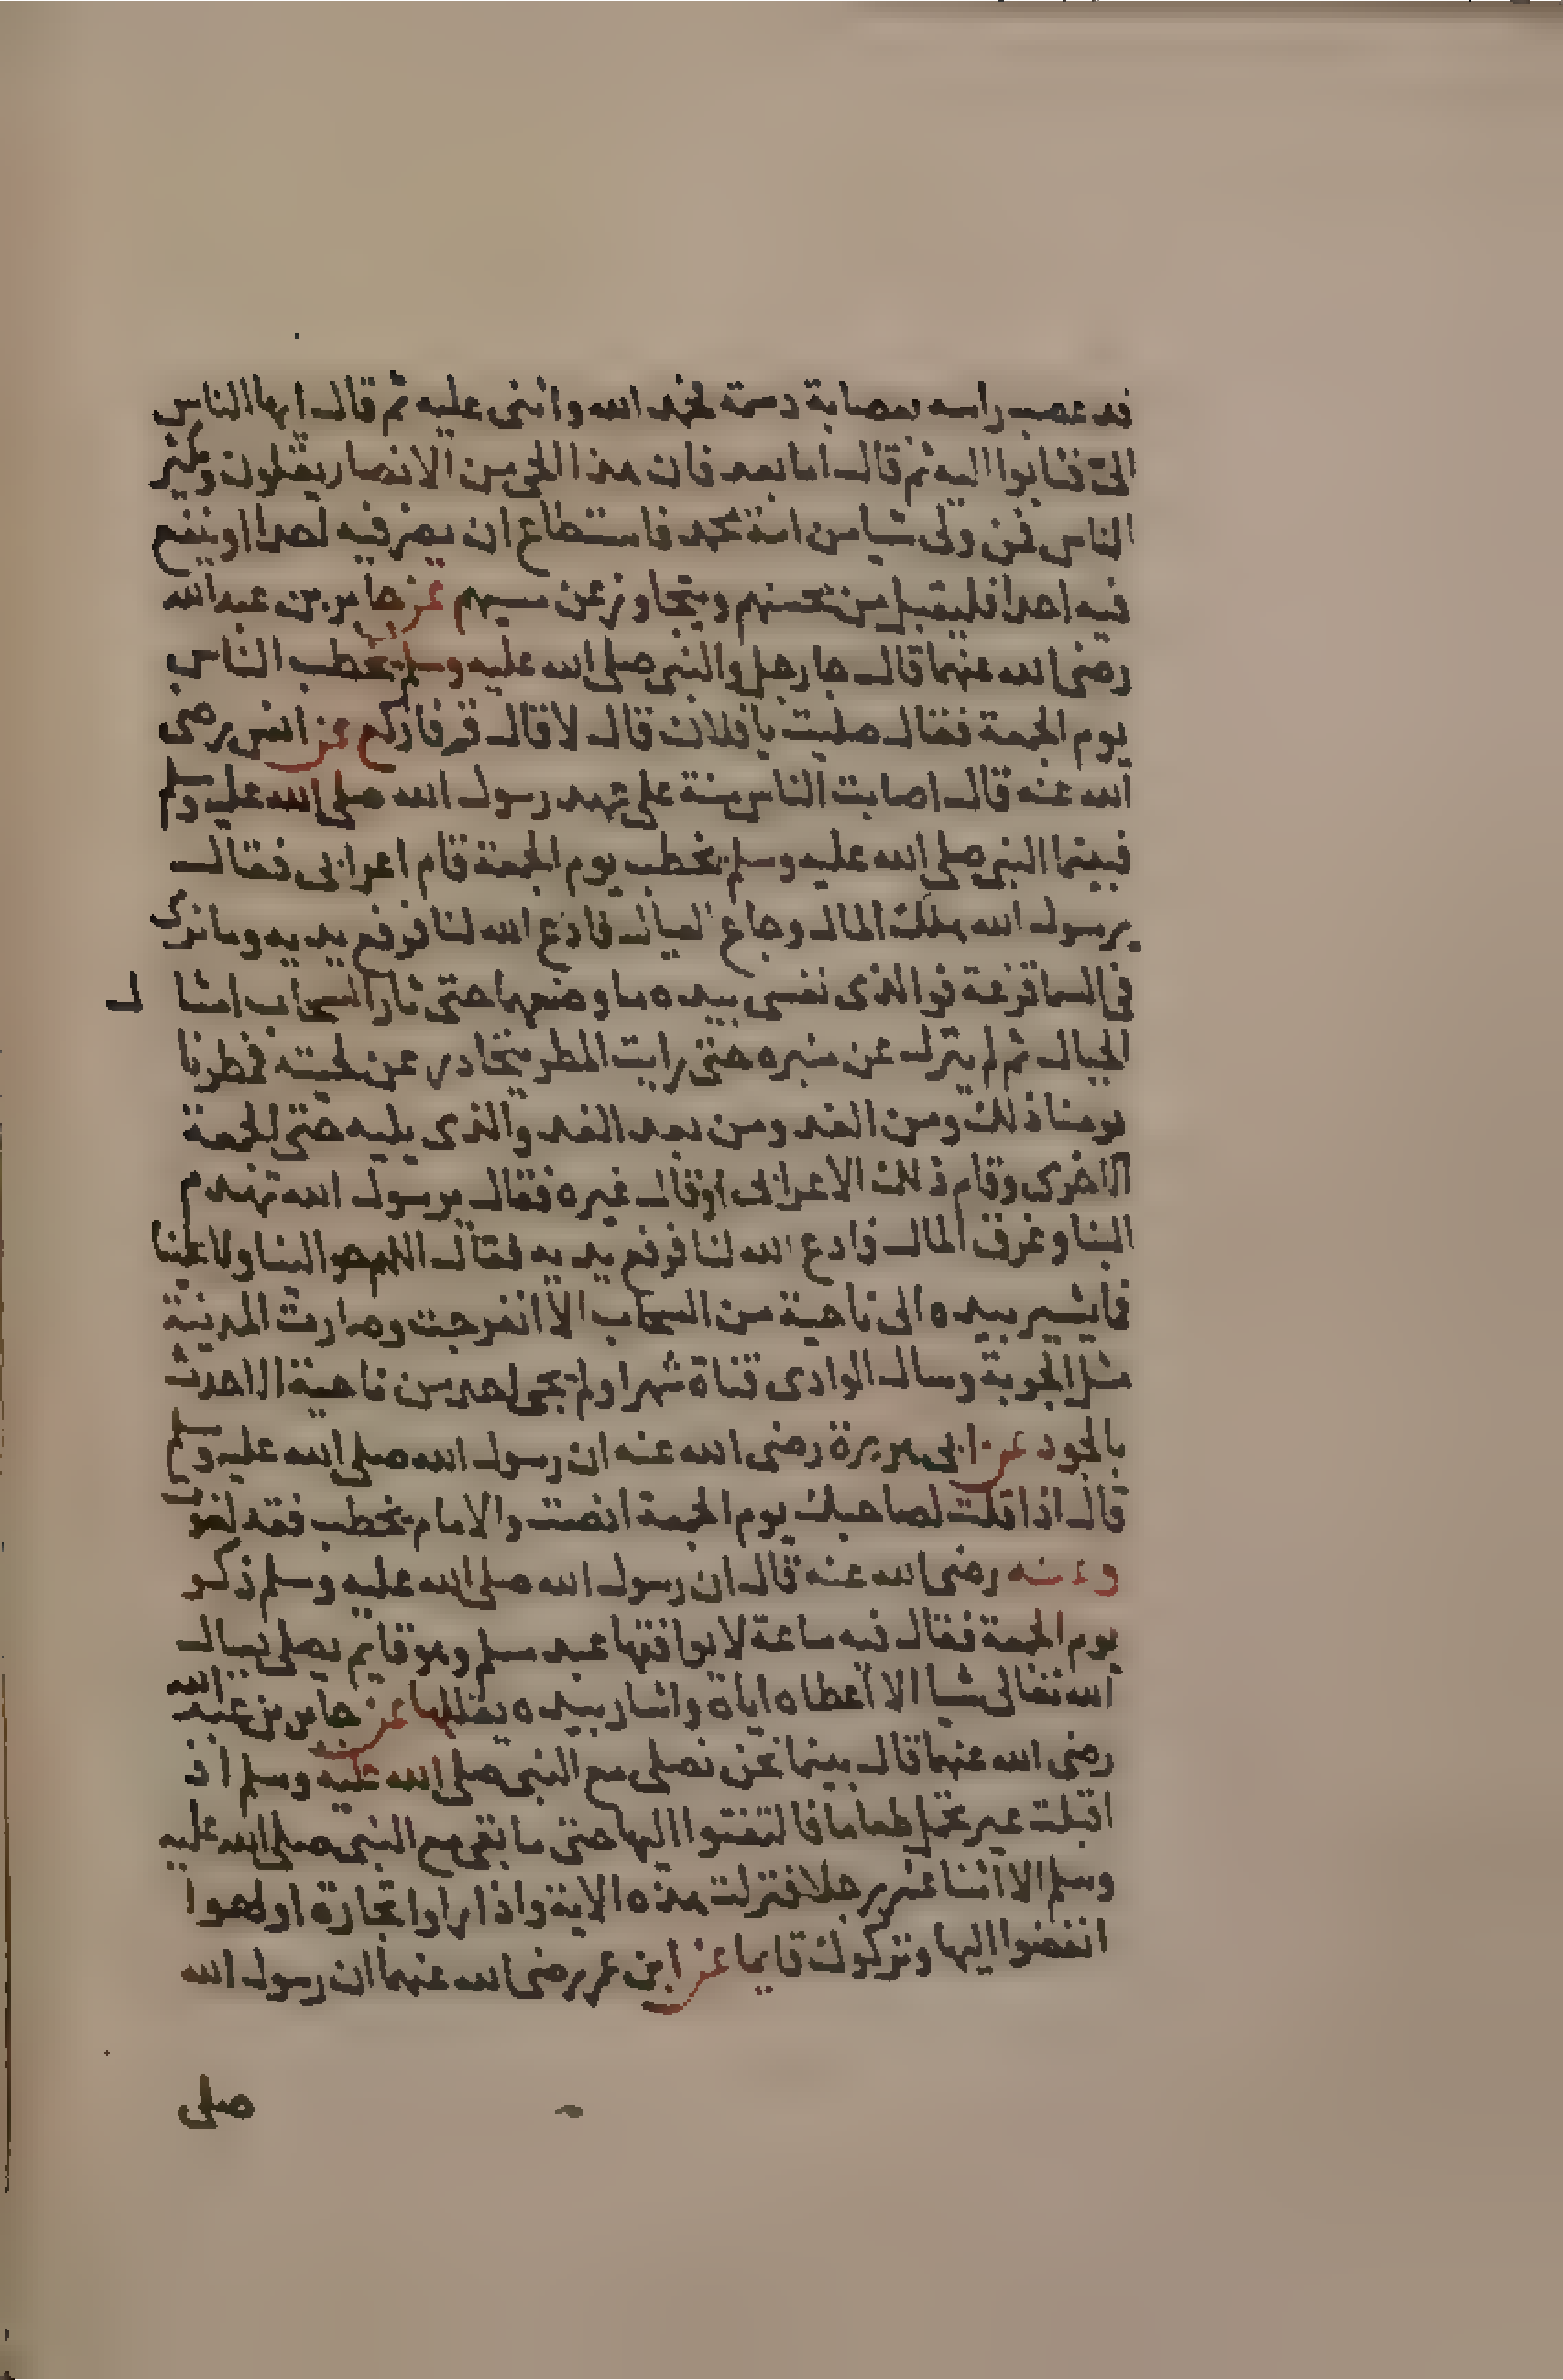 قد عصب راسه بعصابة دسمة فحمد الله واثنى عليه ثم قال ايها الناس
الىّ فثابوا اليه ثم قال اما بعد فان هذا الحى من الانصار يقلون وتكثر
الناس فمن ولى شيا من امة محمد فاستطاع ان يضر فيه احدا او ينفع
فيه احدا فليقبل من محسنهم ويتجاوز عن مسيهم عن جابر بن عبد الله
رضى الله عنهما قال جا رجل والنبى صلى الله عليه وسلم يخطب الناس
يوم الجمعة فقال صليت يا فلان قال لا قال قم فاركع عن انس رضى
الله عنه قال اصابت الناس سنة على عهد رسول الله صلى الله عليه وسلم
فبينما النبى صلى الله عليه وسلم يخطب يوم الجمعة قام اعرابى فقال
يرسول الله هلك المال وجاع العيال فادع الله لنا فرفع يديه وما نرى
فى السما قزعة فوالذى نفسى بيده ما وضعها حتى ثار السحاب امثا ل
الجبال ثم لم ينزل عن منبره حتى رايت المطر يتحادر عن لحيته فمطرنا
يومنا ذلك ومن الغد ومن بعد الغد والذى يليه حتى الجمعة
الاخرى وقام ذلك الاعرابى اوقال غيره فقال يرسول الله تهدم
البنا وغرق المال فادع الله لنا فرفع يديه فقال اللهم حوالينا ولا علينا
فما يشير بيده الى ناحية من السحاب الا انفرجت وصارت المدينة
مثل الجوبة وسال الوادى قناة شهرا ولم يجى احد من ناحية الا حدث
بالجود عن ابى هريرة رضى الله عنه ان رسول الله صلى الله عليه وسلم
قال اذا قلت لصاحبك يوم الجمعة انصت والامام يخطب فقد لغوت
وعنه رضى الله عنه قال ان رسول الله صلى الله عليه وسلم ذكر
يوم الجمعة فقال فيه ساعة لا يوافقها عبد مسلم وهو قايم يصلى يسال
الله تعالى شيا الا اعطاه اياه واشار بيده يقللها عن جابر بن عبد الله
رضى الله عنهما قال بينما نحن نصلى مع النبى صلى الله عليه وسلم اذ
اقبلت عير تحمل طعاما فالتفتوا اليها حتى ما بقى مع النبى صلى الله عليه
وسلم الا اثنا عشر رجلا فنزلت هذه الاية واذا راوا تجارة او لهوا
انفضوا اليها وتركوك قايما عن ابن عمر رضى الله عنهما ان رسول الله
صلى